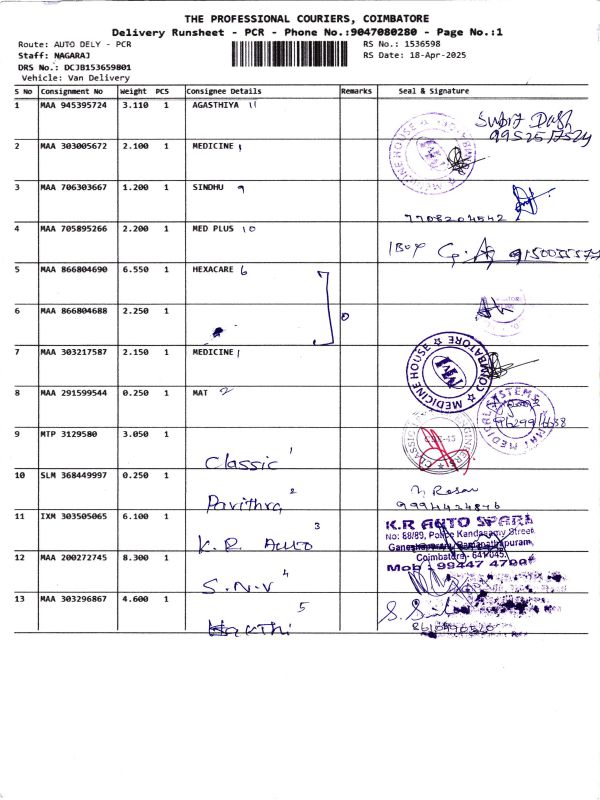 THE PROFESSIONAL COURIERS, COIMBATORE
Delivery Runsheet - PCR - Phone No.:9047080280 - Page No.:1
Route: AUTO DELY - PCR RS No.: 1536598
Staff: NAGARAJ RS Date: 18-Apr-2025
DRS No.: DCJB153659801
Vehicle: Van Delivery
S No Consignment No Weight PCS Consignee Details Remarks Seal & Signature
1 MAA 945395724 3.110 1 AGASTHIYA 11
9952517524
2 MAA 303005672 2.100 1 MEDICINE 1
MEDICINE HOUSE
3 MAA 706303667 1.200 1 SINDHU 9
7708204542
4 MAA 705895266 2.200 1 MED PLUS 10
5 MAA 866804690 6.550 1 HEXACARE 6
6 MAA 866804688 2.250 1
7 MAA 303217587 2.150 1 MEDICINE 1
MEDICINE HOUSE COIMBATORE
8 MAA 291599544 0.250 1 MAT 2
MAT MEDICAL SYSTEMS
9 MTP 3129580 3.050 1 Classic 1
10 SLM 368449997 0.250 1 Pavithra 2
11 IXM 303505065 6.100 1 K.R Auto 3
K.R AUTO SPARE
No: 88/89, Police Kandasamy Street
Ramanathapuram,
Coimbatore - 641045.
12 MAA 200272745 8.300 1 S.N.V 4
Mob : 99447
13 MAA 303296867 4.600 1 5